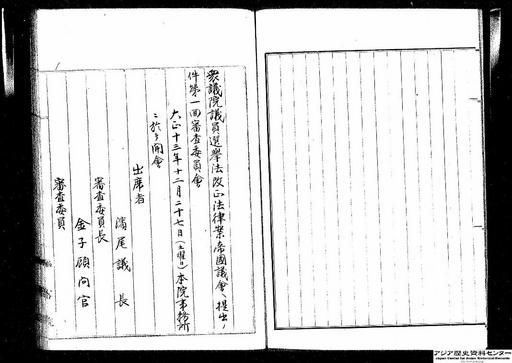 衆議院議員選挙法改正法律案帝國議會ヘ提出ノ
件第一回審査委員會
大正十三年十二月二十七日(土曜日)本院事務所
ニ於テ開會
出席者
濱尾議長
審査委員長
金子顧問官
審査委員
アジア歴史資料センター
Japan Center for Asian Historical Records